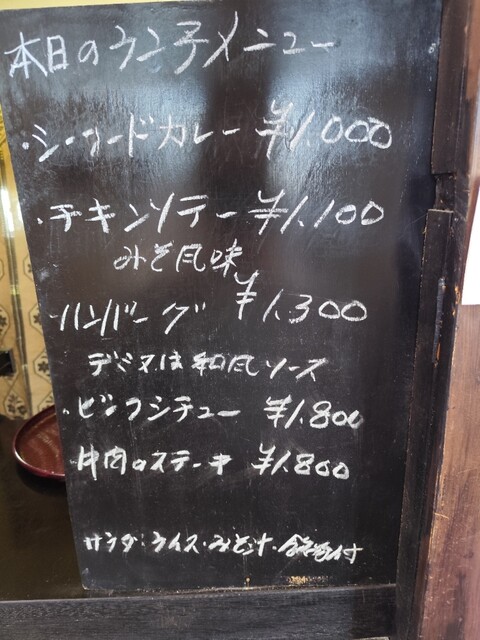 本日のランチメニュー
・シーフードカレー ¥1.000
・チキンソテー ¥1.100
みそ風味
ハンバーグ ¥1.300
デミ又は和風ソース
・ビーフシチュー ¥1.800
牛肉のステーキ ¥1.800
サラダ・ライス・みそ汁・付